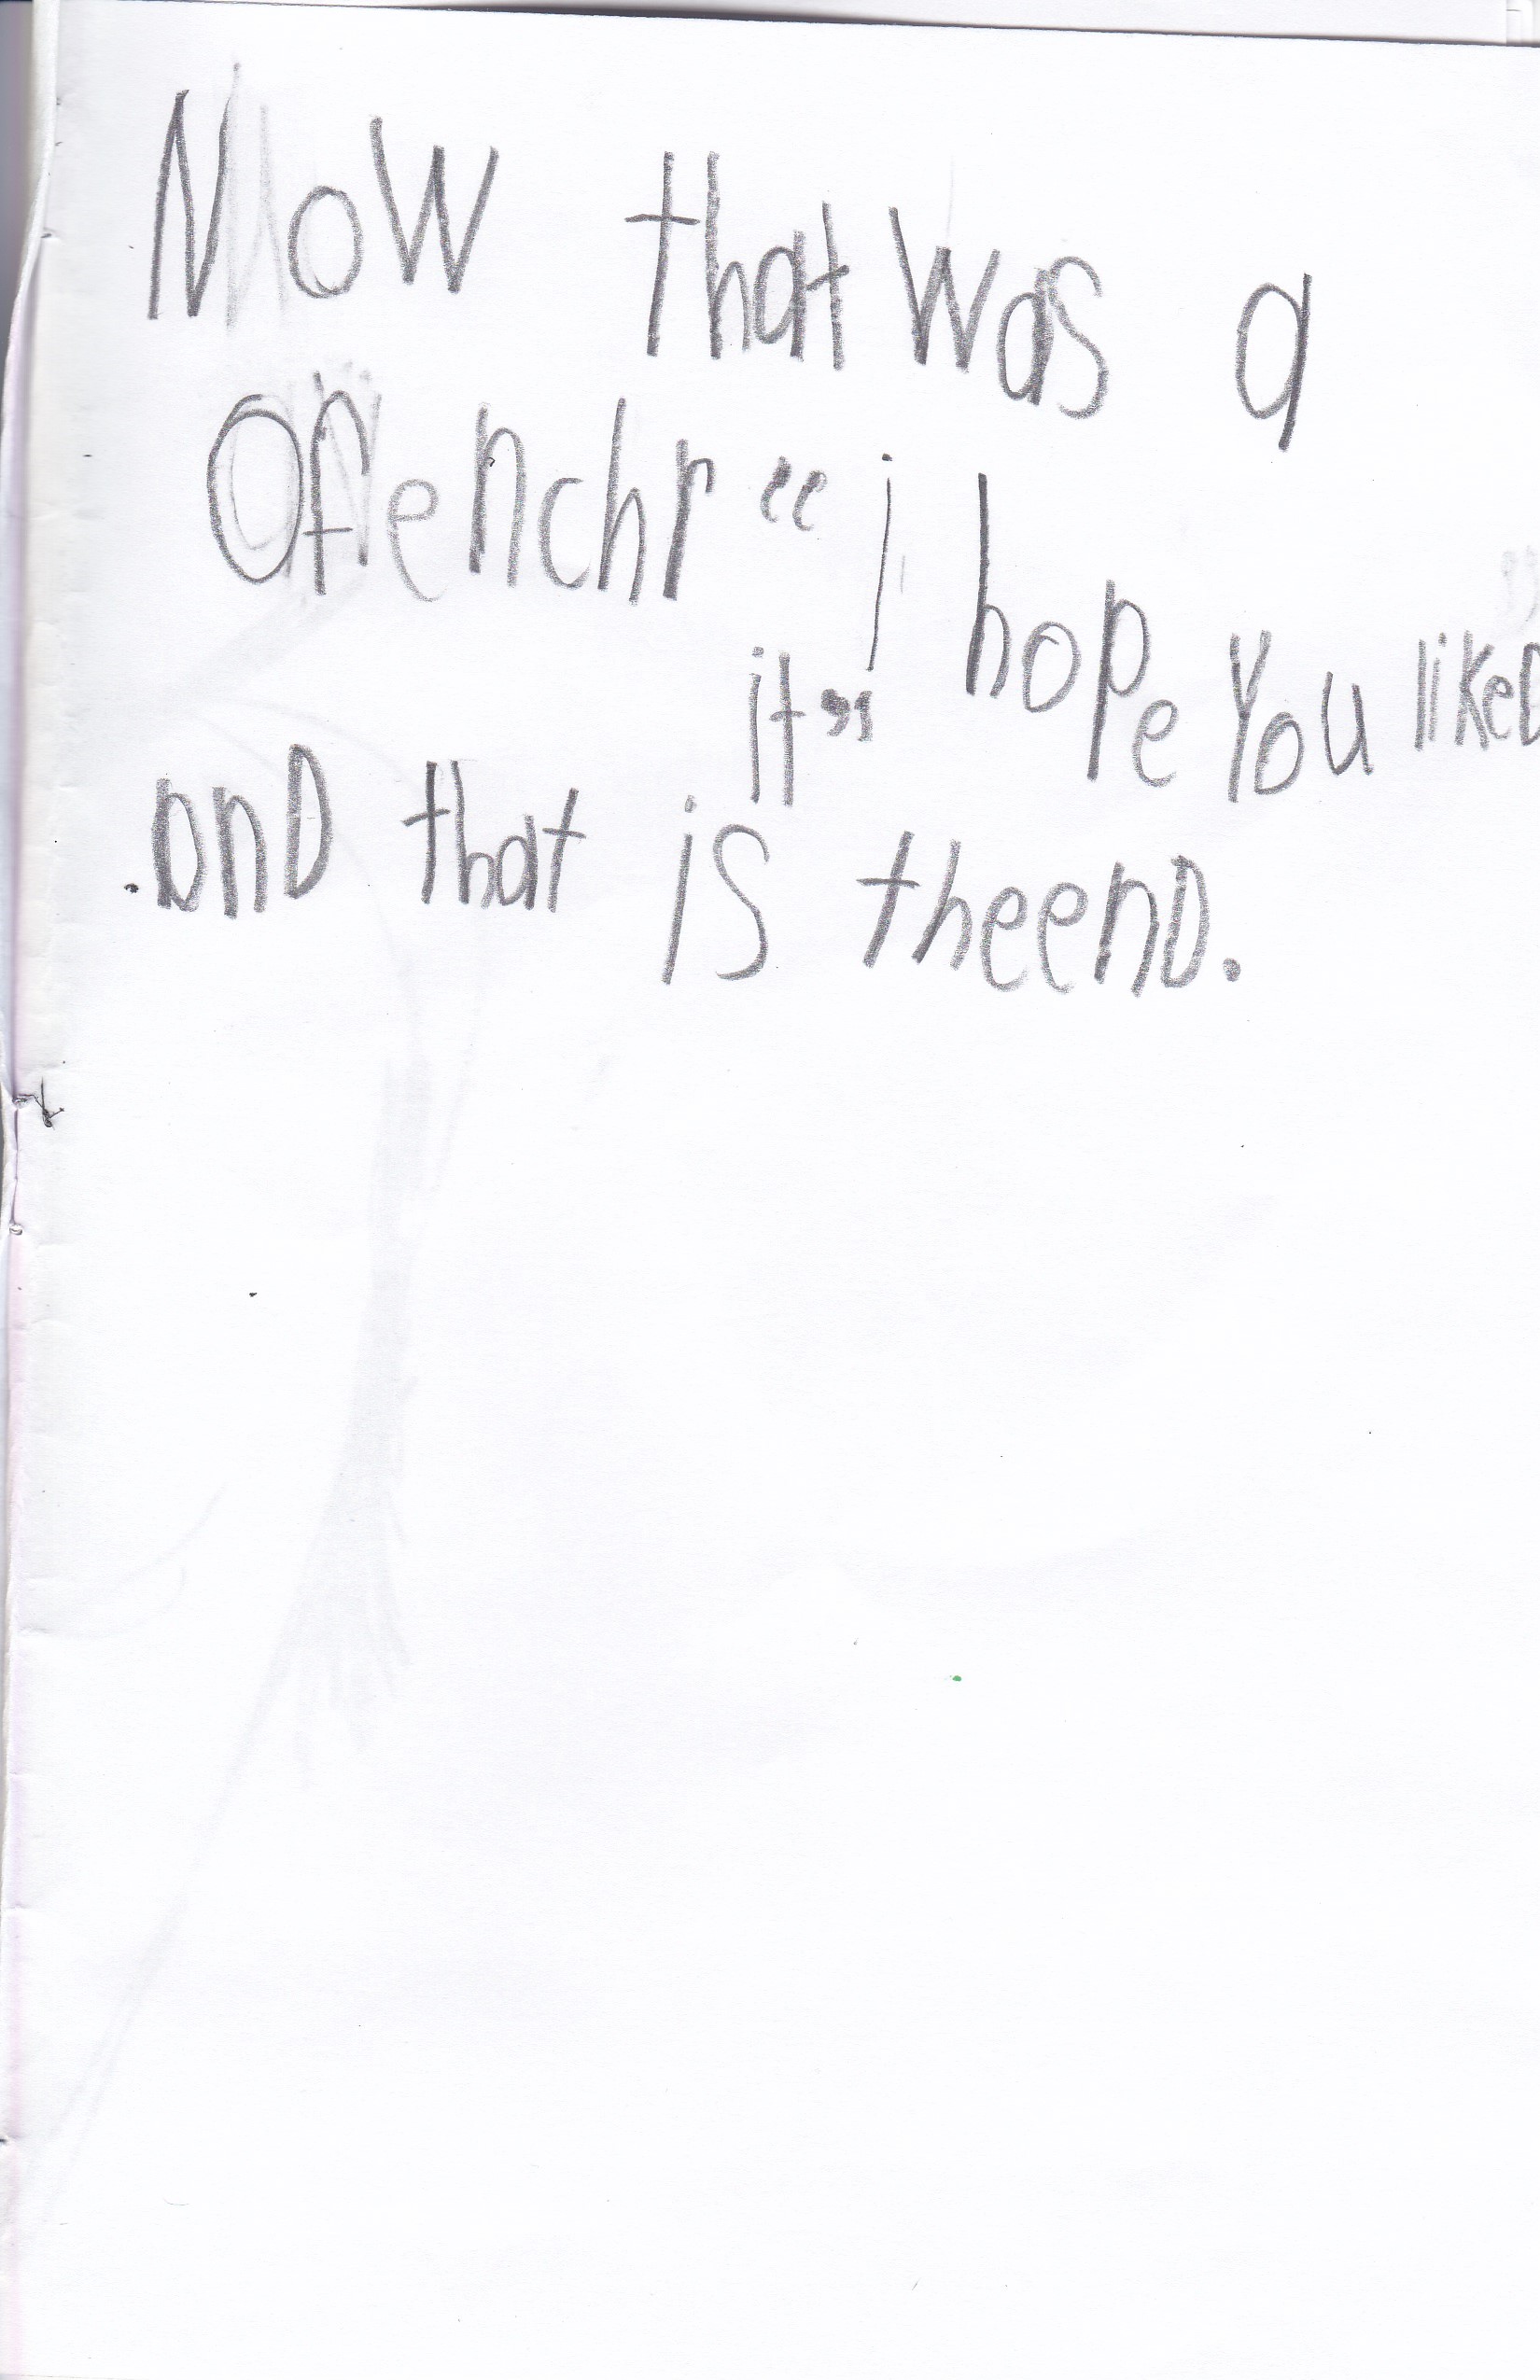 Now that was a
Ofenchr “i hope you likeD
it”
anD that is theenD.